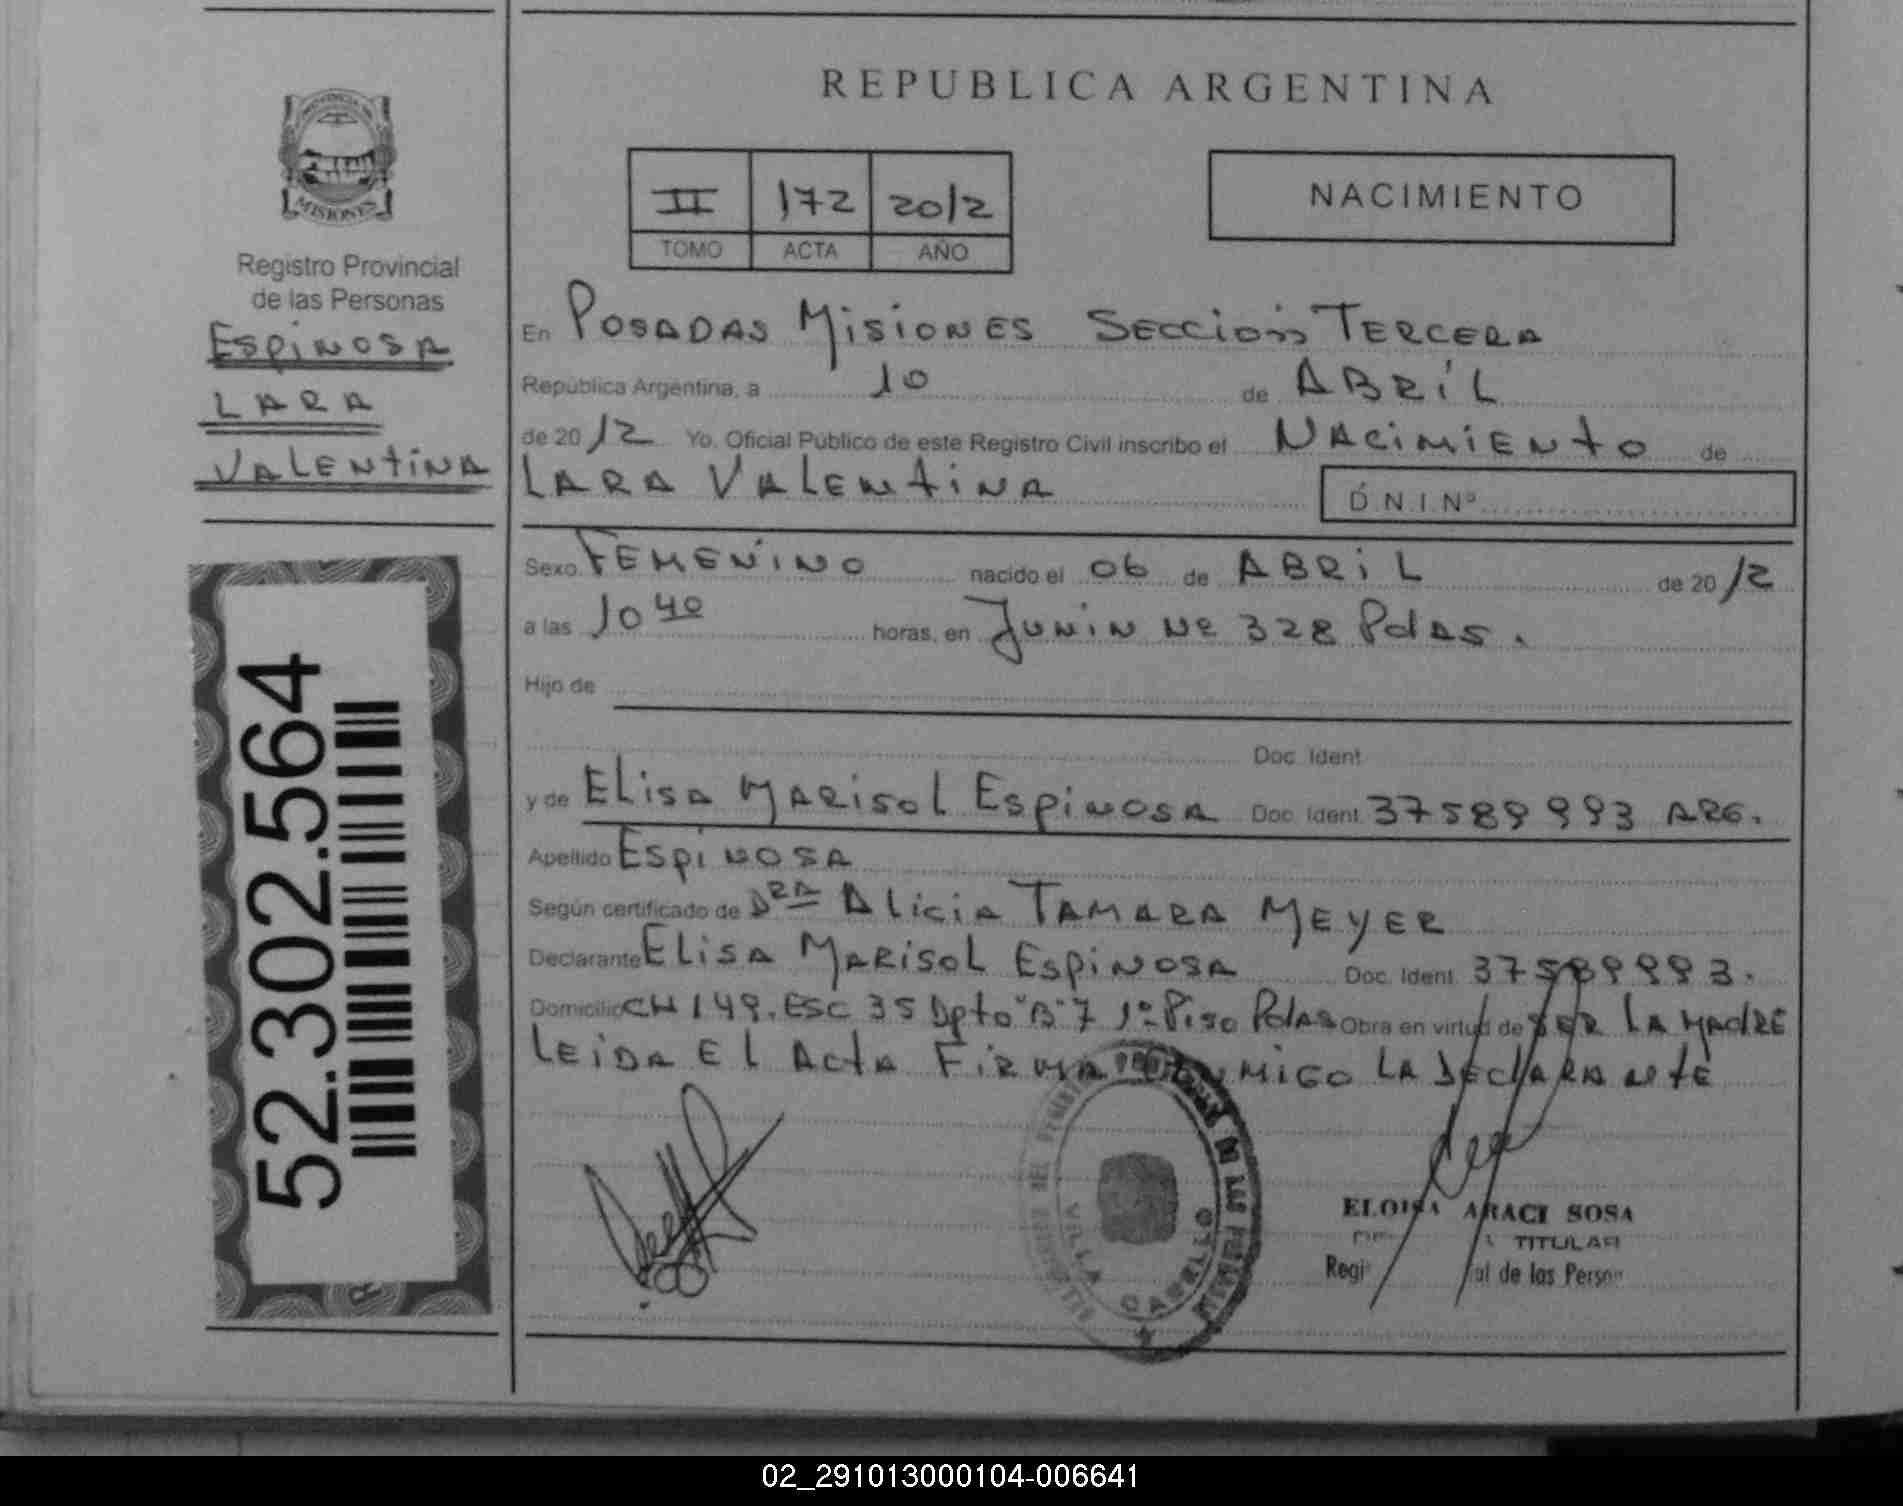 REPUBLICA ARGENTINA
PROVINCIA DE
MISIONES
Registro Provincial
de las Personas
ESPINOSA
LARA
VALENTINA
52.302.564
II 172 2012
TOMO ACTA AÑO
NACIMIENTO
En POSADAS MISIONES SECCION TERCERA
República Argentina, a 10 de ABRIL
de 2012 Yo, Oficial Público de este Registro Civil inscribo el NACIMIENTO de
LARA VALENTINA D.N.I.Nº
Sexo FEMENINO nacido el 06 de ABRIL de 2012
a las 10 40 horas, en JUNIN Nº 328 Pdas.
Hijo de
Doc. Ident
y de ELISA MARISOL ESPINOSA Doc. Ident. 37589993 ARG.
Apellido ESPINOSA
Según certificado de DRA ALICIA TAMARA MEYER
Declarante ELISA MARISOL ESPINOSA Doc. Ident. 37589993.
Domicilio CH 149. ESC 35 Dpto "B" 7 1º Piso Pdas Obra en virtud de SER LA MADRE
LEIDA EL ACTA FIRMA CONMIGO LA DECLARANTE
VILLA CABELLO
ELOISA ARACI SOSA
TITULAR
de las Person
02_291013000104-006641